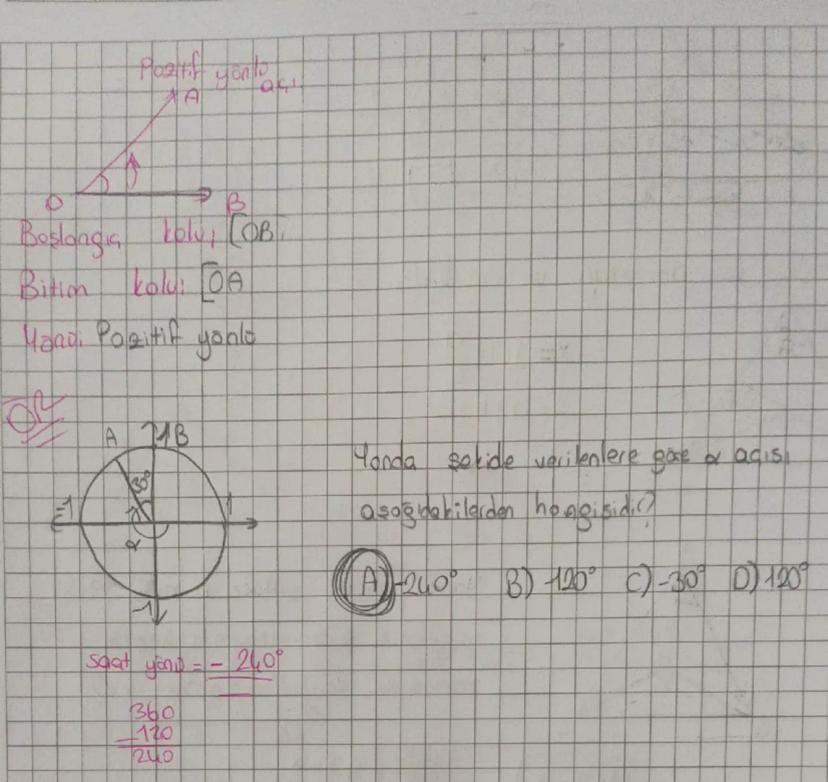 Pozitif yönlü
açı
A
O
B
Başlangıç kolu; [OB
Bitim kolu: [OA
Yönü: Pozitif yönlü
ÖR
A 1 B
30°
-1
1
α
-1
Yanda şekilde verilenlere göre α açısı
aşağıdakilerden hangisidir?
A) -240° B) -120° C) -30° D) 120°
saat yönü = - 240°
360
- 120
240